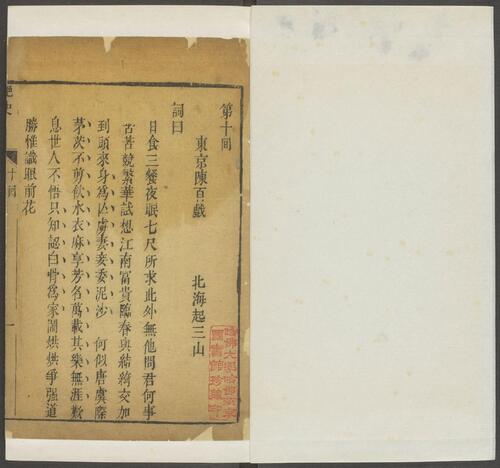 第十回
東京陳百戲　北海起三山
詞曰
日食三餐夜眠七尺所求此外無他問君何事
苦苦競繁華試想江南富貴臨春與結綺交加
到頭來身為囚虜妻妾委泥沙　何似唐虞際
茅茨不剪飲水衣麻享芳名萬載其樂無涯歎
息世人不悟只知認白骨為家鬧烘烘爭強道
勝誰識眼前花
艷史
十回
一
哈佛大學哈佛燕京
圖書館珍藏印